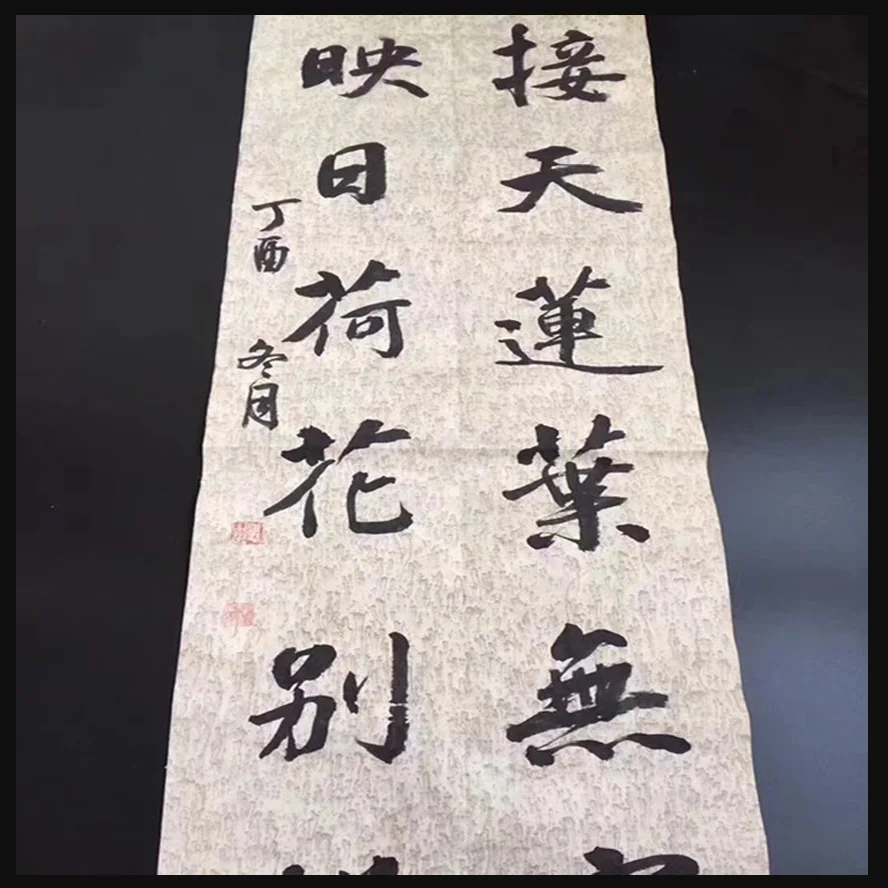 接天蓮葉無
映日荷花别
丁酉 冬月